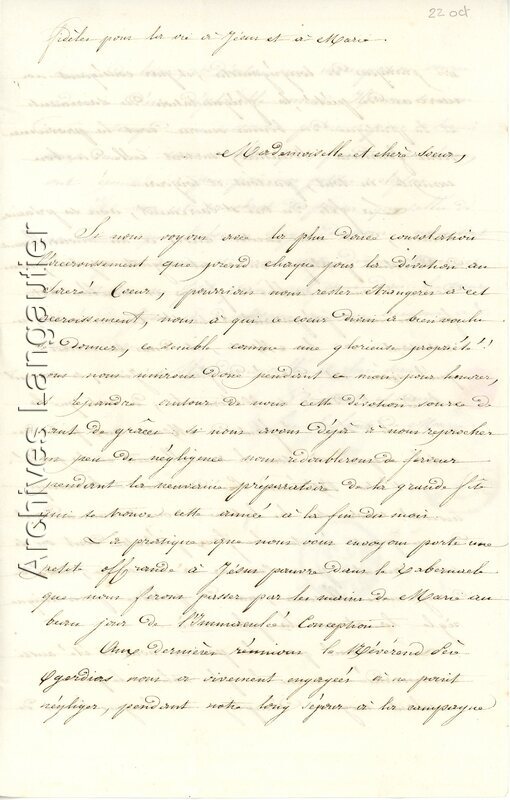 22 oct
fidèles pour la vie à Jésus et à Marie.
Mademoiselle et chère soeur,
Si nous voyons avec la plus douce consolation
l'accroissement que prend chaque jour la dévotion au
Sacré Coeur, pourrions nous rester étrangères à cet
accroissement, nous à qui ce coeur divin a bien voulu
se donner, ce semble comme une glorieuse propriété!!
nous nous unirons donc pendant ce mois pour honorer,
et répandre autour de nous cette dévotion source de
tant de grâces si nous avons déjà à nous reprocher
un peu de négligence nous redoublerons de ferveur
pendant la neuvaine préparatoire de la grande fête
qui se trouve cette année à la fin du mois.
La pratique que nous vous envoyons porte une
petite offrande à Jésus pauvre dans le Tabernacle
que nous ferons passer par les mains de Marie au
beau jour de l'Immaculée Conception.
Aux dernières réunions le Révérend Père
nous a vivement engagées à ne point
négliger, pendant notre long séjour à la campagne
Archives Langautier